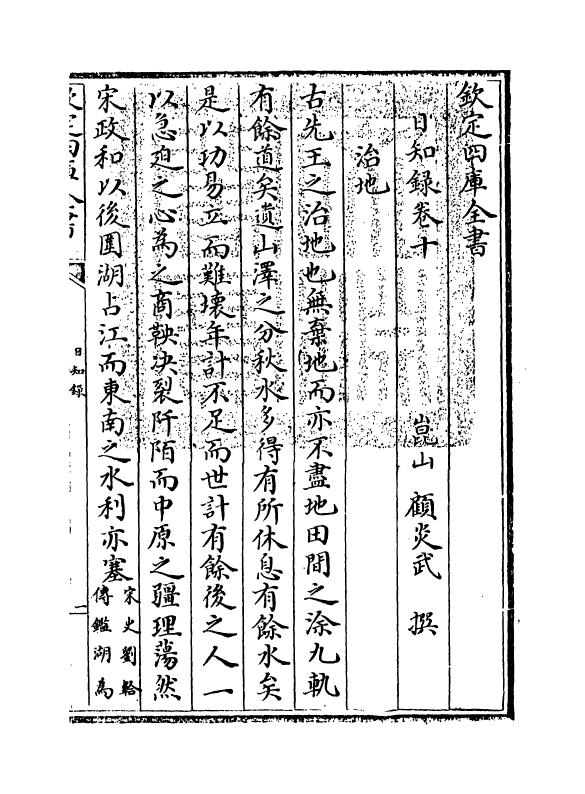 欽定四庫全書
日知錄卷十
崑山 顧炎武 撰
治地
古先王之治地也無棄地而亦不盡地田間之涂九軌
有餘道矣遺山澤之分秋水多得有所休息有餘水矣
是以功易立而難壞年計不足而世計有餘後之人一
以急迫之心為之商鞅决裂阡陌而中原之疆理蕩然
宋政和以後圍湖占江而東南之水利亦塞宋史劉韐
傳鑑湖為
日知錄